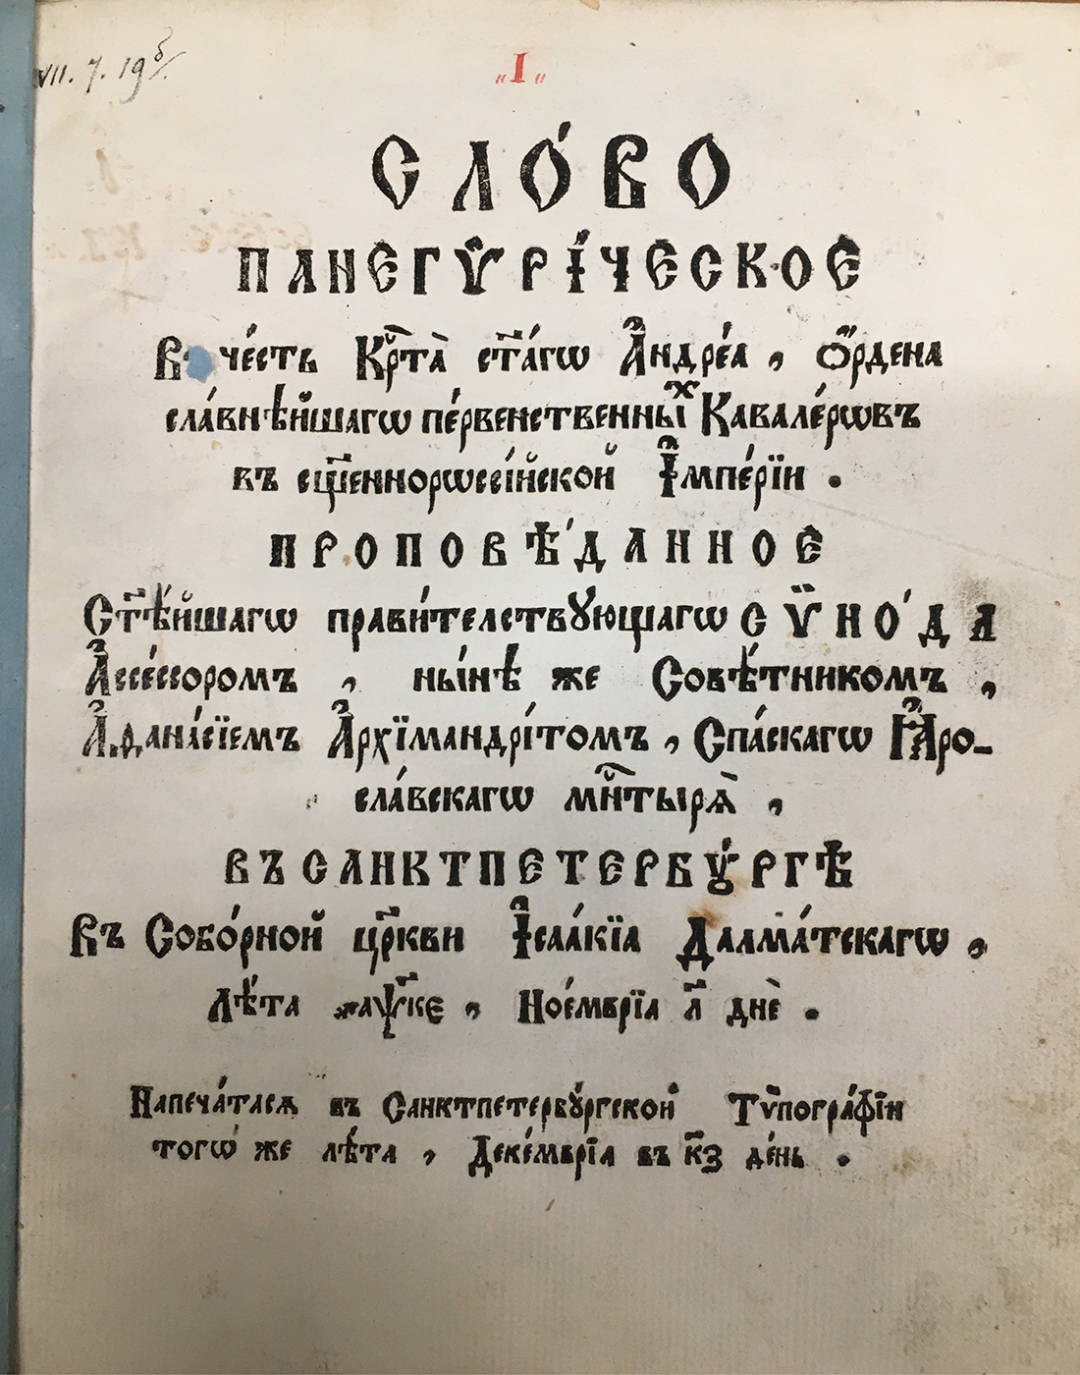 VII. 7. 19 б/.
„I„
СЛО́ВО
ПАНЕГѴРІ́ЧЕСКОЕ
Въ че́сть Крⷭ҇та̀ ст҃а́гѡ А҆ндре́а , О҆́рдена
сла́внѣйшагѡ пе́рвенственныⷯ Кавале́рѡвъ
въ сщ҃еннорѡссі́йской И҆мпе́рїи .
ПРОПОВѢ́ДАННОЕ
Ст҃ѣ́йшагѡ прави́телствꙋющагѡ СѴНО́ДА
А҆ссе́ссоромъ , ны́нѣ же Совѣ́тникомъ ,
А҆ѳана́сїемъ А҆рхїмандрі́томъ , Спа́скагѡ Ꙗ҆ро-
сла́вскагѡ мⷩ҇тырѧ̀ ,
ВЪ САНКТПЕТЕРБꙊ́РГѢ
Въ Собо́рной цр҃кви І҆саа́кїа Далма́тскагѡ ,
лѣ́та ҂аѱ҃ке , Ное́мврїа л҃ днѐ .
Напеча́тасѧ въ Санктпетербꙋ́ргской Тѷпогра́фїи
тогѡ́ же лѣ́та , Деке́мврїа въ к҃з де́нь .